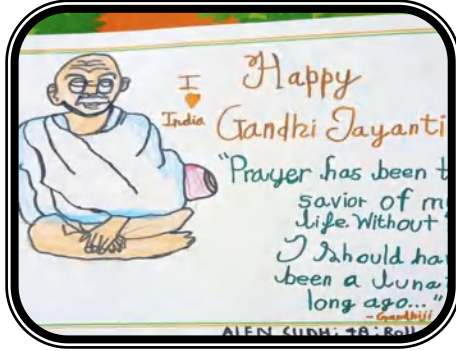 I
♥
India
Happy
Gandhi Jayanti
"Prayer has been t
savior of m
life. Without
I Should ha
been a luna
long ago..."
- Gandhiji
ALEN SUDHI: 4B: Roll